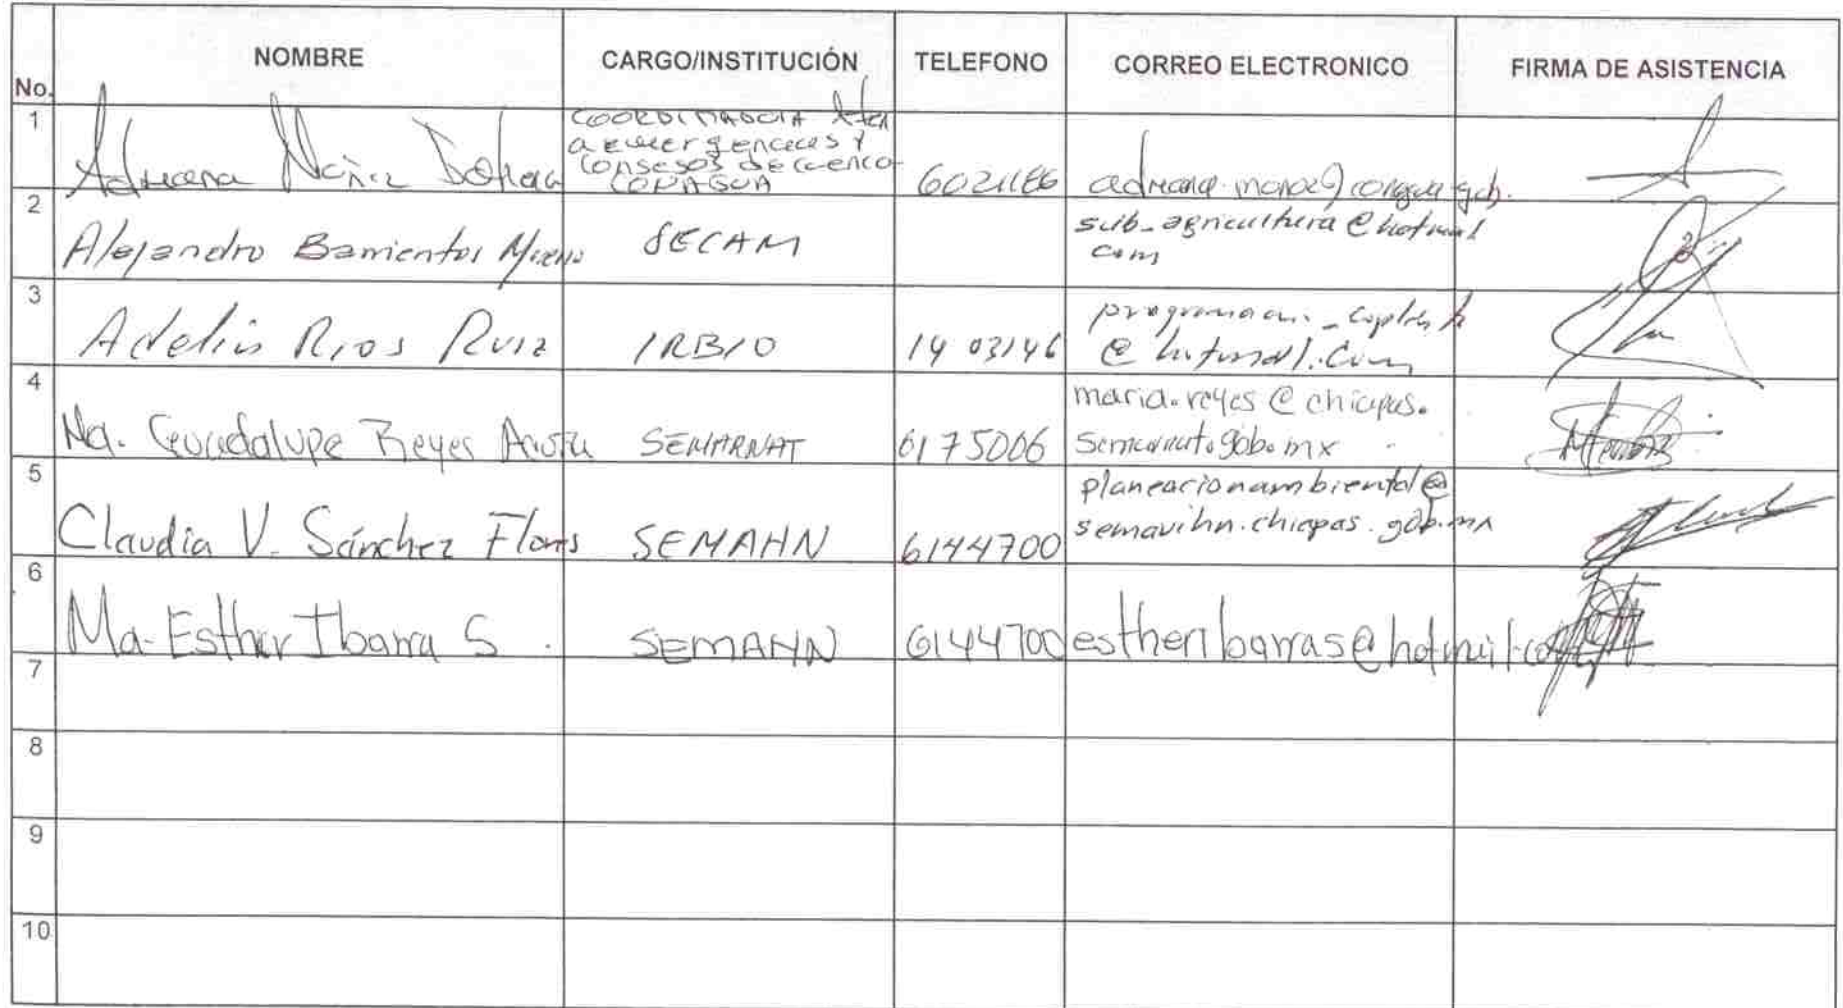 No. NOMBRE CARGO/INSTITUCIÓN TELEFONO CORREO ELECTRONICO FIRMA DE ASISTENCIA
1 Adriana COORDINADORA
a emergencias y
consesos de cuenca
CONAGUA
2 Alejandro Barrientos SECAM sub_agricultura@hotmail
com
3 Rios Ruiz IRBIO 14 03146
@hotmail.com
4 Ma. Guadalupe Reyes SEMARNAT 6175006 maria.reyes@chiapas.
semarnat.gob.mx
5 Claudia V. Sánchez Flores SEMAHN 6144700 planeacionambiental@
semavihn.chiapas.gob.mx
6 Ma. Esther Ibarra S. SEMAHN 6144700 estheribarras@hotmail.com
7
8
9
10